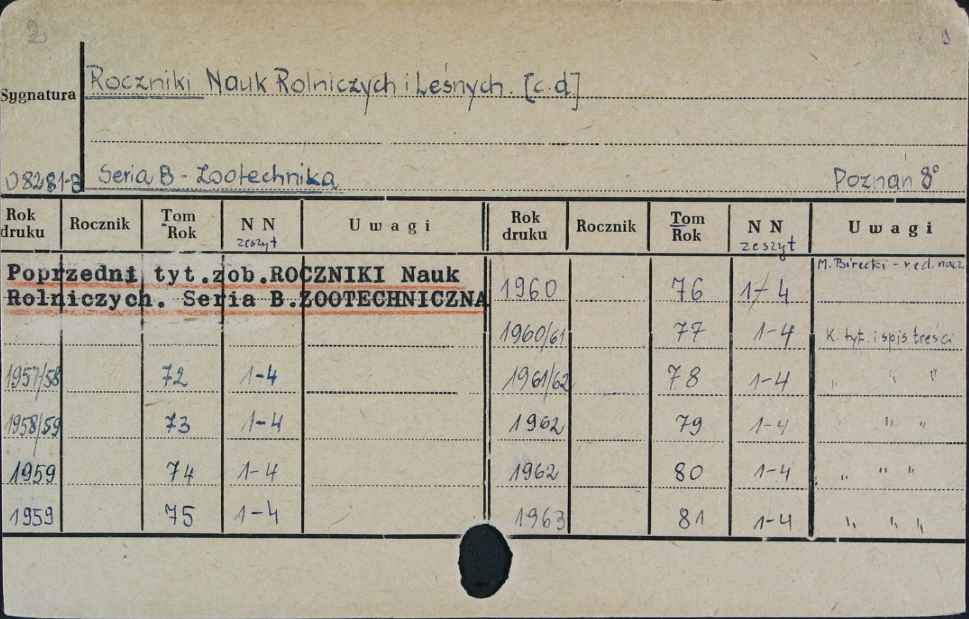 2
Roczniki Nauk Rolniczych i Leśnych. [c.d.]
Sygnatura
08281-B Seria B - Zootechnika Poznań 8°
Rok druku Rocznik Tom Rok NN zeszyt Uwagi Rok druku Rocznik Tom Rok NN zeszyt Uwagi
Poprzedni tyt.zob.ROCZNIKI Nauk
Rolniczych. Seria B.ZOOTECHNICZNA
1960 76 1-4 M. Birecki - red. nacz.
1960/61 77 1-4 K. tyt. i spis treści
1957/58 72 1-4 1961/62 78 1-4 " " "
1958/59 73 1-4 1962 79 1-4 " "
1959 74 1-4 1962 80 1-4 " " "
1959 75 1-4 1963 81 1-4 " " "